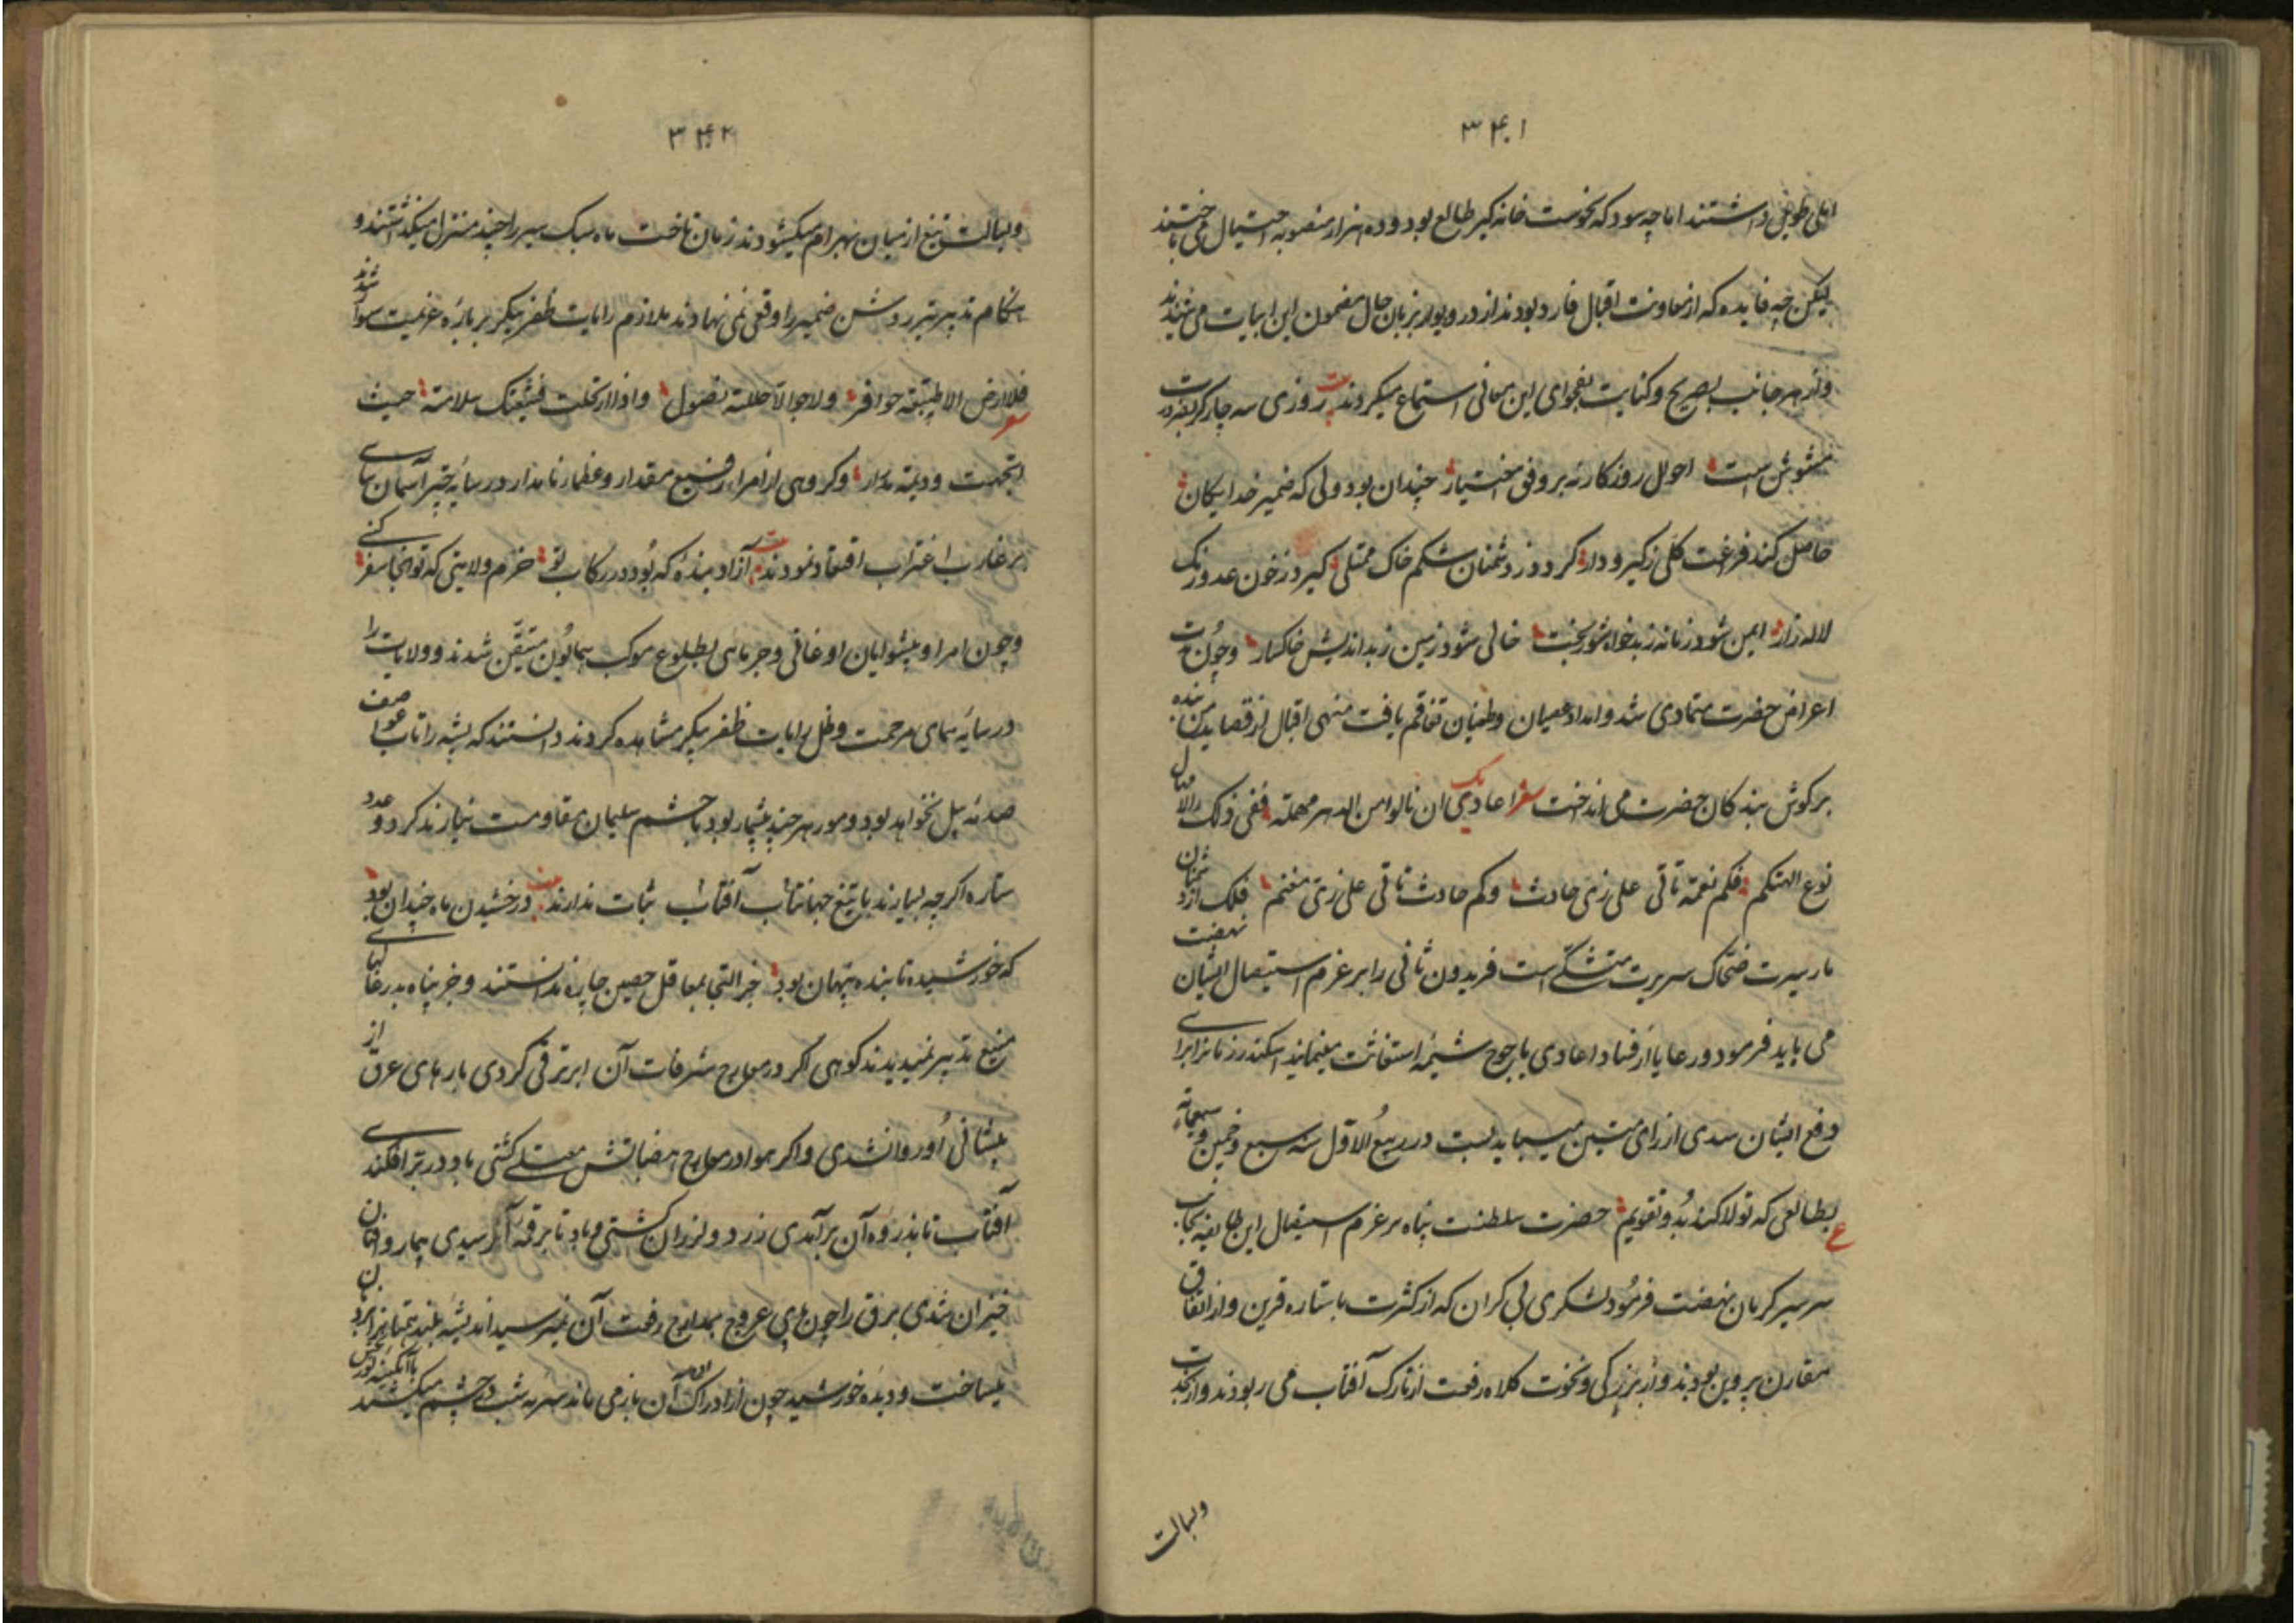 ۳۴۱
املی طویل داشتند اما چه سود که نحوست خانه کیر طالع بود و ده هزار منصوبه احتیال می باختند
لیکن چه فایده که از معاونت اقبال فارد بودند از در و دیوار بزبان حال مضمون این ابیات می شنیدند
و از هر جانب بصریح و کنایت فحوای این معانی استماع میکردند بیت روزی سه چار کر
مشوش است احوال روزکار نه بر وفق اختیار چندان بود ولی که ضمیر خدایکان
حاصل کند فرغت کلی ز کیر و دار کردد ز دشمنان شکم خاک ممتلی کیرد ز خون عدو رنک
لاله زار ایمن شود زمانه ز بدخواه شوربخت خالی شود زمین ز بداندیش خاکسار و چون مدت
اعراض حضرت متمادی شد و امداد عصیان و طغیان تفاقم یافت منهی اقبال از قصاید من بنده
بر کوش بندکان حضرت می انداخت شعر اعادیک ان نالوا من الدهر مهلة ففی ذلک الامهال
نوع الهتکم فکم نعمة تاتی علی زی حادث وکم حادث تاتی علی زی مغنم فلک از دشمنان
مار سیرت ضحاک سریرت متشکی است فریدون ثانی را بر عزم استیصال ایشان نهضت
می باید فرمود و رعایا از فساد اعادی یاجوج شیمه استغاثت مینمایند اسکندر زمانرا برای
دفع ایشان سدی از رای متین میباید بست در ربیع الاول سنه سبع و خمسین و سبعمائه
ع بطالعی که تولا کند بدو تقویم حضرت سلطنت پناه بر عزم استیصال این طایفه بجانب
سرسیر کرمان نهضت فرمود لشکری بی کران که از کثرت با ستاره قرین و از اتفاق
مقارن پروین بودند و از بزرکی و نخوت کلاه رفعت از تارک آفتاب می ربودند و از نجدت
وبسالت
۳۴۲
و بسالت تیغ از میان بهرام میکشودند زمان تاخت ماه سبک سیر را چند منزل میکذاشتند و
هنکام تدبیر تیر روشن ضمیر را وقعی نمی نهادند ملازم رایات ظفر پیکر بر باره عزیمت سوار شدند
شعر فلا ارض الا طبقته حوافر ولا جو الا حللته نصول و اذا ارتحلت فشیعتک سلامة حیث
اتجهت و دیمة مدرار و کروهی از امراء رفیع مقدار و عظماء نامدار در سایه چتر آسمان سای
بر غارب اغتراب اقتعاد نمودند بیت آزاد بنده که بود در رکاب تو خرم ولایتی که تو آنجا سفر کنی
و چون امرا و پیشوایان اوغانی و جرمائی بطلوع موکب همایون متیقن شدند و ولایات را
در سایه همای مرحمت و ظل رایات ظفر پیکر مشاهده کردند دانستند که پشه را تاب عواصف
صدمه پیل نخواهد بود و مور هر چند بیشمار بود با حشم سلیمان مقاومت نیارند کرد و عدد
ستاره اکر چه بسیارند با تیغ جهانتاب آفتاب ثبات ندارند بیت درخشیدن ماه چندان بود
که خورشید تابنده پنهان بود جز التجا بمعاقل حصین چاره ندانستند و جز پناه بدرغاهای
منیع تدبیر نمیدیدند کوهی اکر در معارج شرفات آن ابر ترقی کردی بارهای عرق از
پیشانی او روان شدی و اکر هوا در معارج هضباتش معتلی کشتی باد در بر افکندی
آفتاب تا بذروه آن بر آمدی زرد و لرزان کشتی و باد تا برقه آن رسیدی بیمار و افتان
خیزان شدی برق را چون پای عروج بمدارج رفعت آن نمیرسید اندیشه بلند همتانرا نردبان
میساخت و دیده خورشید چون از ادراک آن باز می ماند سرمه شب در چشم میکشید